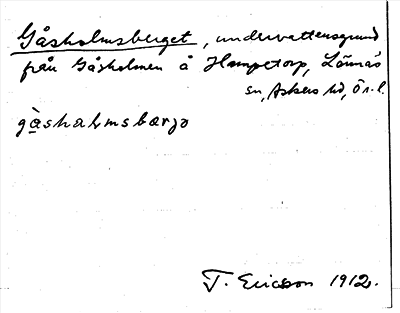 Gåsholmsberget, undervattensgrund
från Gåsholmen å Hampetorp, Lännäs
sn, Askers hd, Ör. l.
gåshaḷmsbærjə
T. Ericsson 1912.